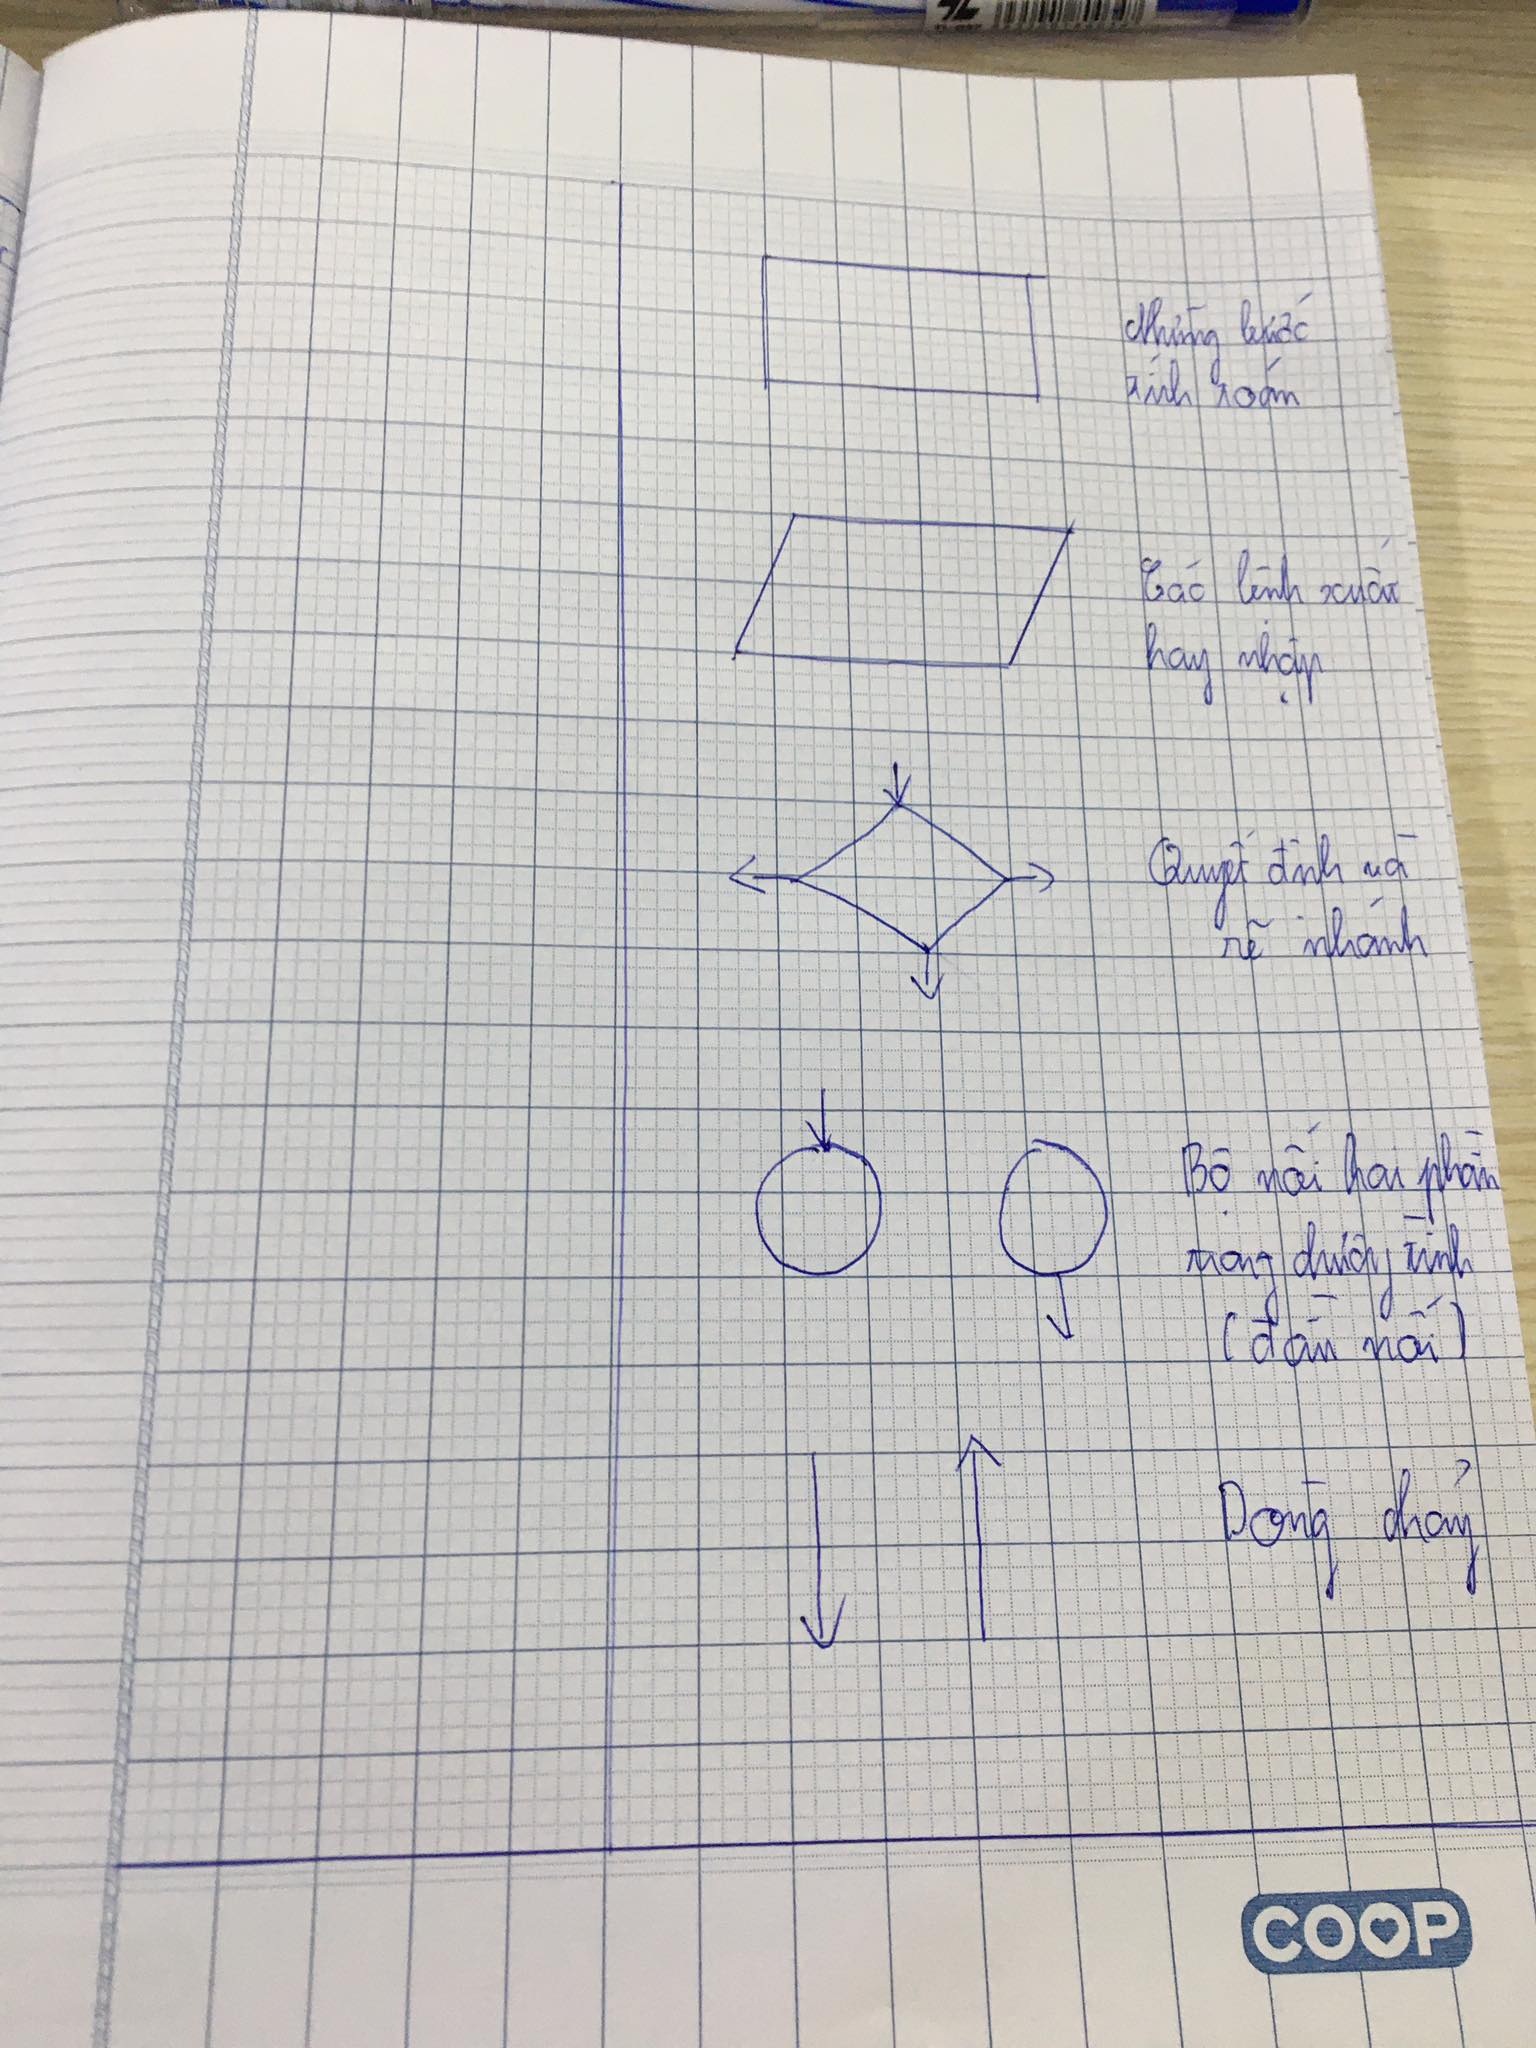 Những bước
tính toán
Các lệnh xuất
hay nhập
Quyết định và
rẽ nhánh
Bộ nối hai phần
trong chương trình
(đầu nối)
Dòng chảy
COOP